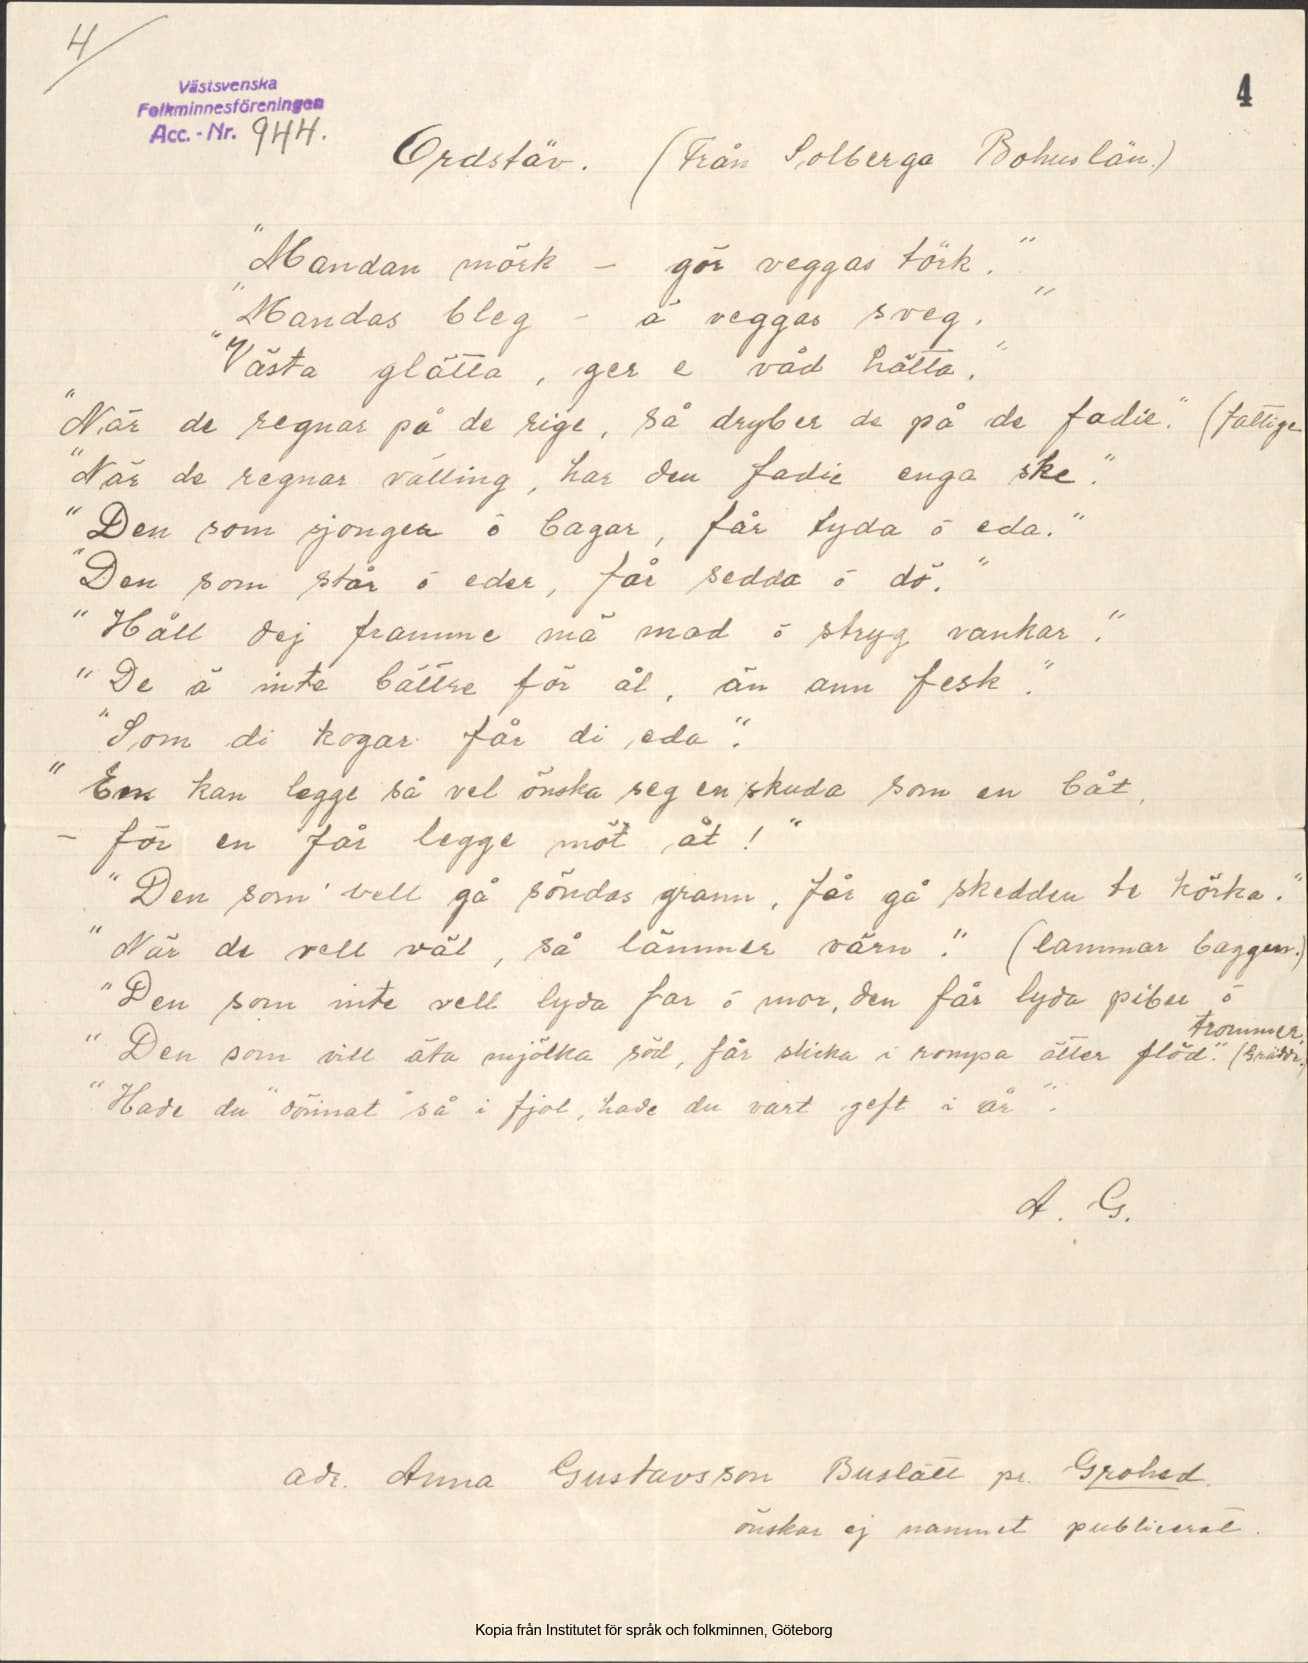 4
Västsvenska
Folkminnesföreningen
Acc. - Nr. 944.
4
Ordstäv. (Från Solberga Bohuslän.)
"Mandan mörk – gör veggas törk."
"Mandas bleg – ä veggas sveg."
"Västa glätta, ger e våd hätta."
"När de regnar på de rige, så dryber de på de fadie." (fattige
"När de regnar välling, har den fadie enga ske."
"Den som sjonger ö bagar, får lyda ö eda."
"Den som står ö eder, får sedda ö dö."
"Håll dej framme mä mad ö stryg vankar."
"De ä inte bättre för ål, än ann fesk."
"Som di kogar får di eda".
"En kan legge så vel önska seg en skuda som en båt,
– för en får legge möt åt!"
"Den som vell gå söndas grann, får gå skedden te körka."
"När de vell väl, så lämmer värn". (lammar baggen.)
"Den som inte vell lyda far ö mor, den får lyda piber ö
trommer.
"Den som vill äta mjölka söd, får slicka i rompa ätter flöd." (Grädde.)
"Hade du "dönnat" så i fjol, hade du vart geft i år".
A. G.
adr. Anna Gustavsson Buslätt pr. Grohed.
önskar ej namnet publicerat.
Kopia från Institutet för språk och folkminnen, Göteborg